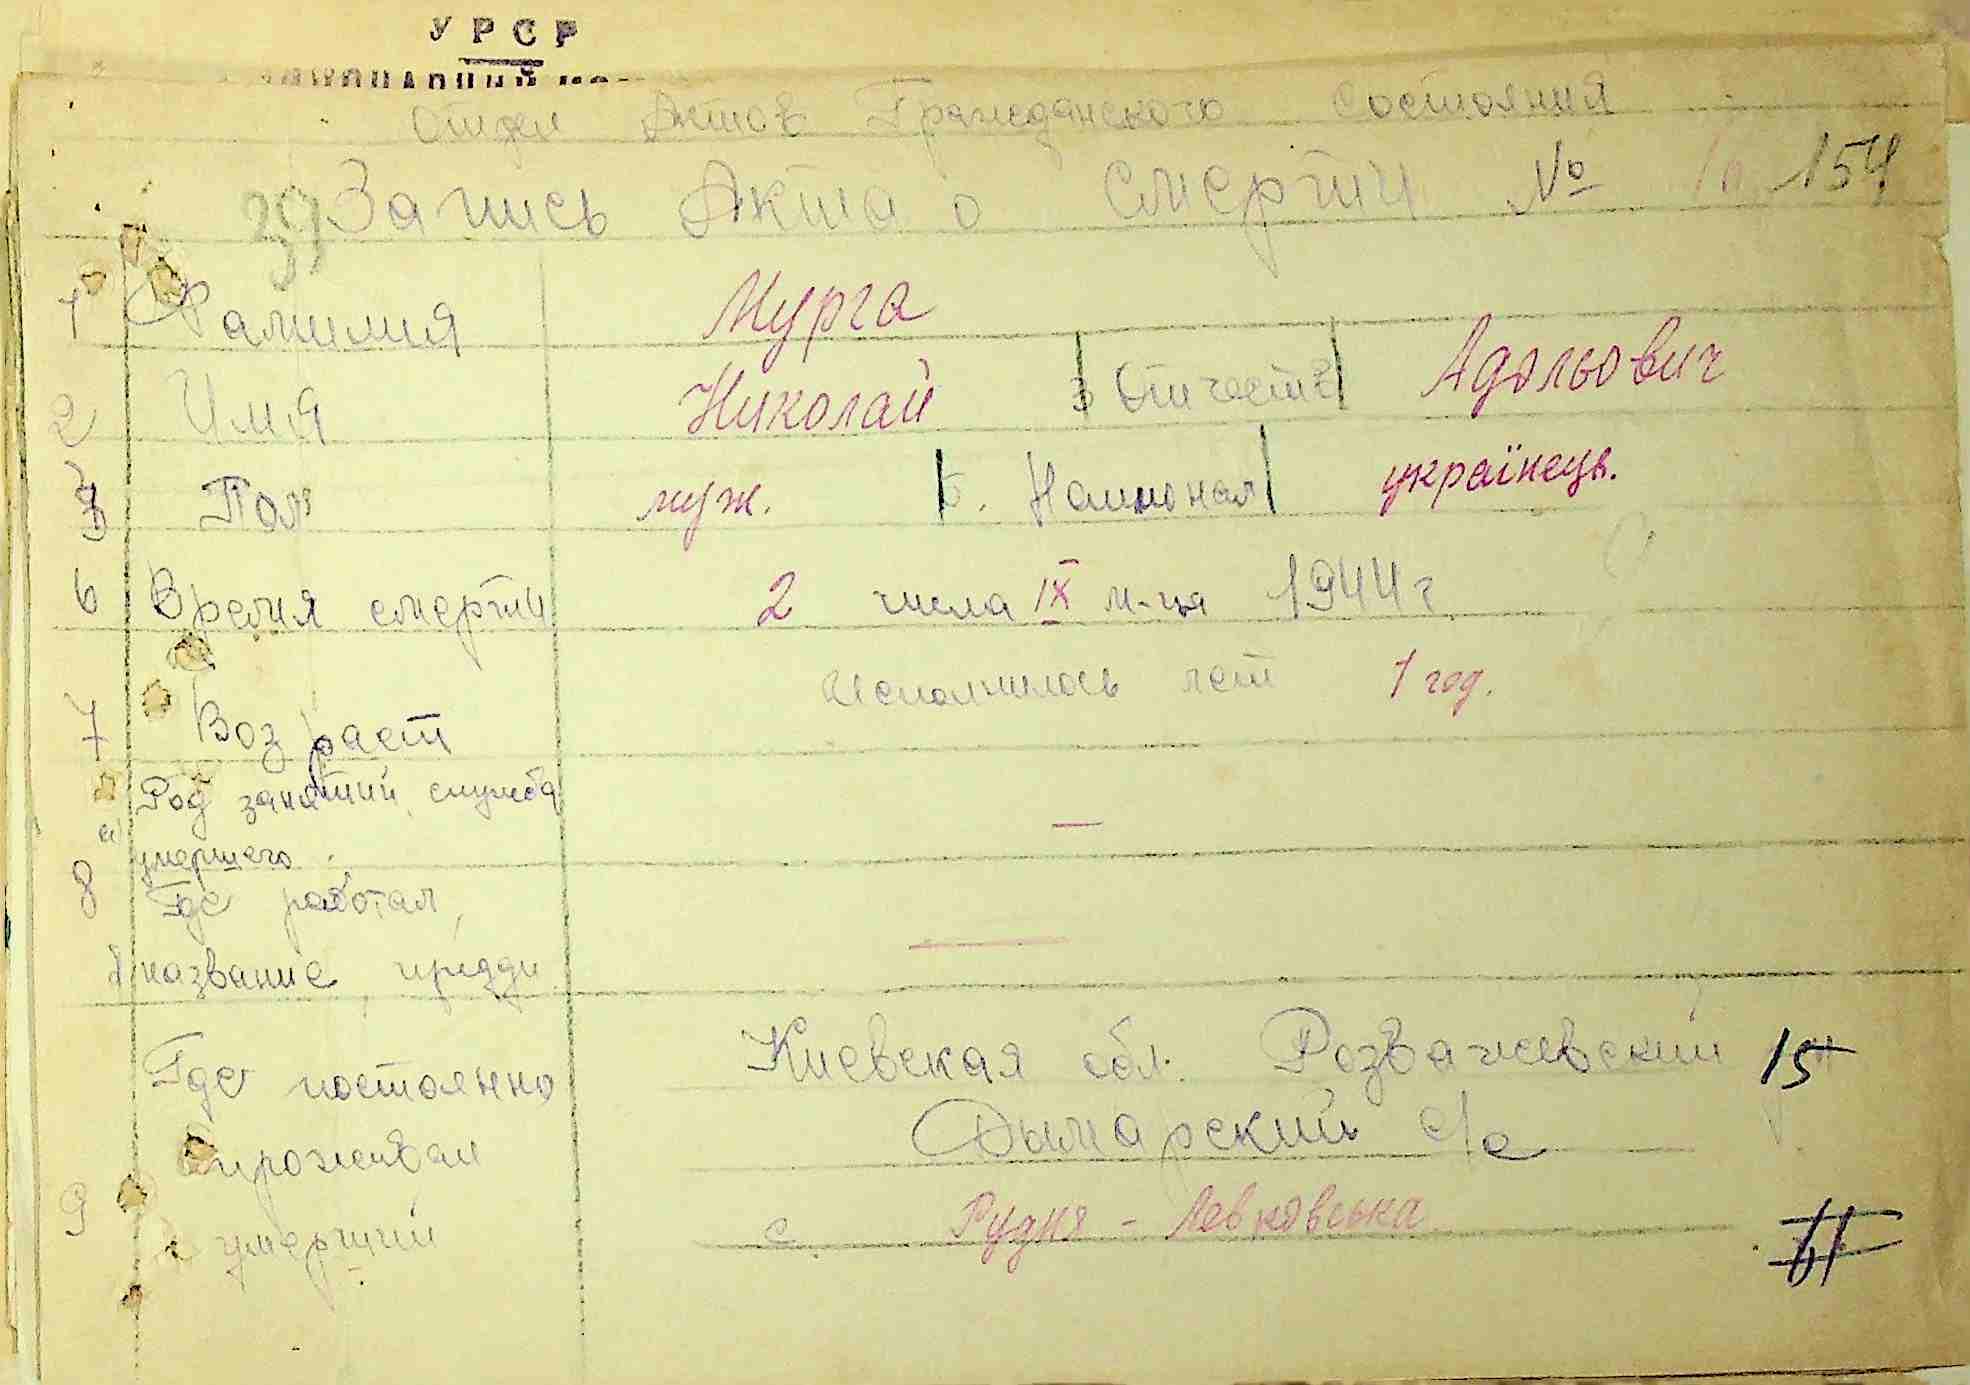 УРСР
Отдел Актов Гражданского Состояния
39 Запись Акта о смерти № 154
1 Фамилия Мурга
2 Имя Николай 3 Отчеств Адольович
Пол муж. 5. Национал українець.
6 Время смерти 2 числа IX м-ця 1944 г
7 Возраст Исполнилось лет 1 год.
Род занятий, служба —
а) умершего.
8 Где работал,
б) название, предпр —
Где постоянно Киевская обл. Розважевский 15
проживал Дымарский с/с
9 умерший с. Рудня - Левковська